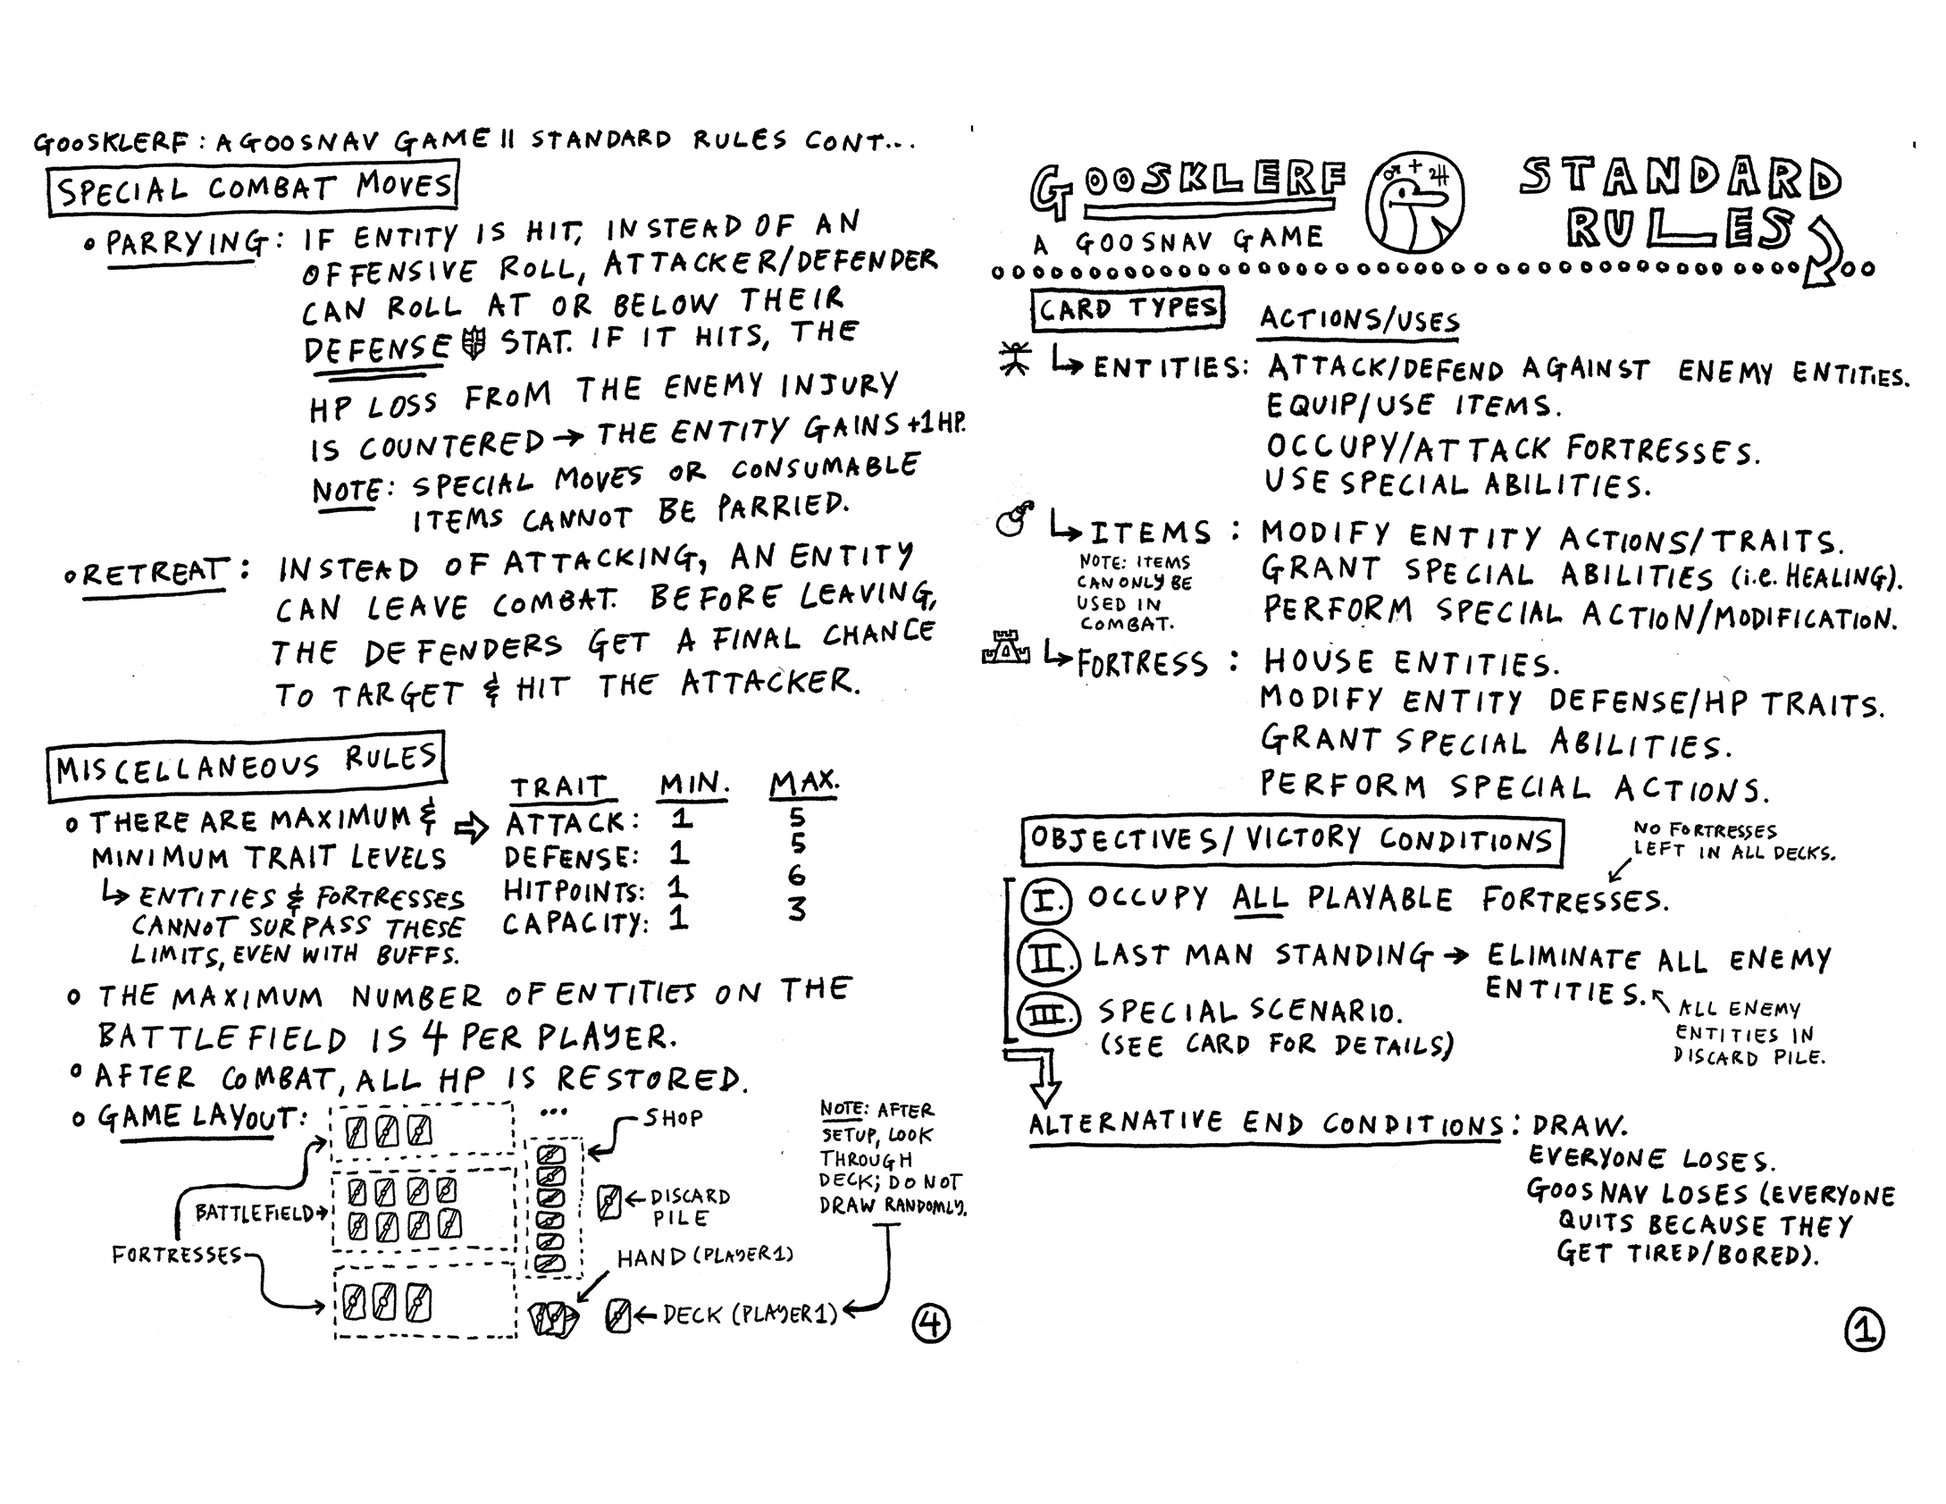 GOOSKLERF: A GOOSNAV GAME || STANDARD RULES CONT...
SPECIAL COMBAT MOVES
• PARRYING: IF ENTITY IS HIT, INSTEAD OF AN
OFFENSIVE ROLL, ATTACKER/DEFENDER
CAN ROLL AT OR BELOW THEIR
DEFENSE STAT. IF IT HITS, THE
HP LOSS FROM THE ENEMY INJURY
IS COUNTERED → THE ENTITY GAINS +1 HP.
NOTE: SPECIAL MOVES OR CONSUMABLE
ITEMS CANNOT BE PARRIED.
• RETREAT: INSTEAD OF ATTACKING, AN ENTITY
CAN LEAVE COMBAT. BEFORE LEAVING,
THE DEFENDERS GET A FINAL CHANCE
TO TARGET & HIT THE ATTACKER.
MISCELLANEOUS RULES
• THERE ARE MAXIMUM &
MINIMUM TRAIT LEVELS
↳ ENTITIES & FORTRESSES
CANNOT SURPASS THESE
LIMITS, EVEN WITH BUFFS.
TRAIT MIN. MAX.
ATTACK: 1 5
DEFENSE: 1 5
HITPOINTS: 1 6
CAPACITY: 1 3
• THE MAXIMUM NUMBER OF ENTITIES ON THE
BATTLEFIELD IS 4 PER PLAYER.
• AFTER COMBAT, ALL HP IS RESTORED.
• GAME LAYOUT:
...
SHOP
BATTLEFIELD→
FORTRESSES
←DISCARD
PILE
HAND (PLAYER 1)
←DECK (PLAYER 1)
NOTE: AFTER
SETUP, LOOK
THROUGH
DECK; DO NOT
DRAW RANDOMLY.
4
GOOSKLERF
A GOOSNAV GAME
♂ + ♃
STANDARD
RULES
CARD TYPES
ACTIONS/USES
↳ ENTITIES: ATTACK/DEFEND AGAINST ENEMY ENTITIES.
EQUIP/USE ITEMS.
OCCUPY/ATTACK FORTRESSES.
USE SPECIAL ABILITIES.
↳ ITEMS: MODIFY ENTITY ACTIONS/TRAITS.
GRANT SPECIAL ABILITIES (i.e. HEALING).
PERFORM SPECIAL ACTION/MODIFICATION.
NOTE: ITEMS
CAN ONLY BE
USED IN
COMBAT.
↳ FORTRESS: HOUSE ENTITIES.
MODIFY ENTITY DEFENSE/HP TRAITS.
GRANT SPECIAL ABILITIES.
PERFORM SPECIAL ACTIONS.
OBJECTIVES/VICTORY CONDITIONS
NO FORTRESSES
LEFT IN ALL DECKS.
I. OCCUPY ALL PLAYABLE FORTRESSES.
II. LAST MAN STANDING → ELIMINATE ALL ENEMY
ENTITIES.
ALL ENEMY
ENTITIES IN
DISCARD PILE.
III. SPECIAL SCENARIO.
(SEE CARD FOR DETAILS)
ALTERNATIVE END CONDITIONS: DRAW.
EVERYONE LOSES.
GOOSNAV LOSES (EVERYONE
QUITS BECAUSE THEY
GET TIRED/BORED).
1